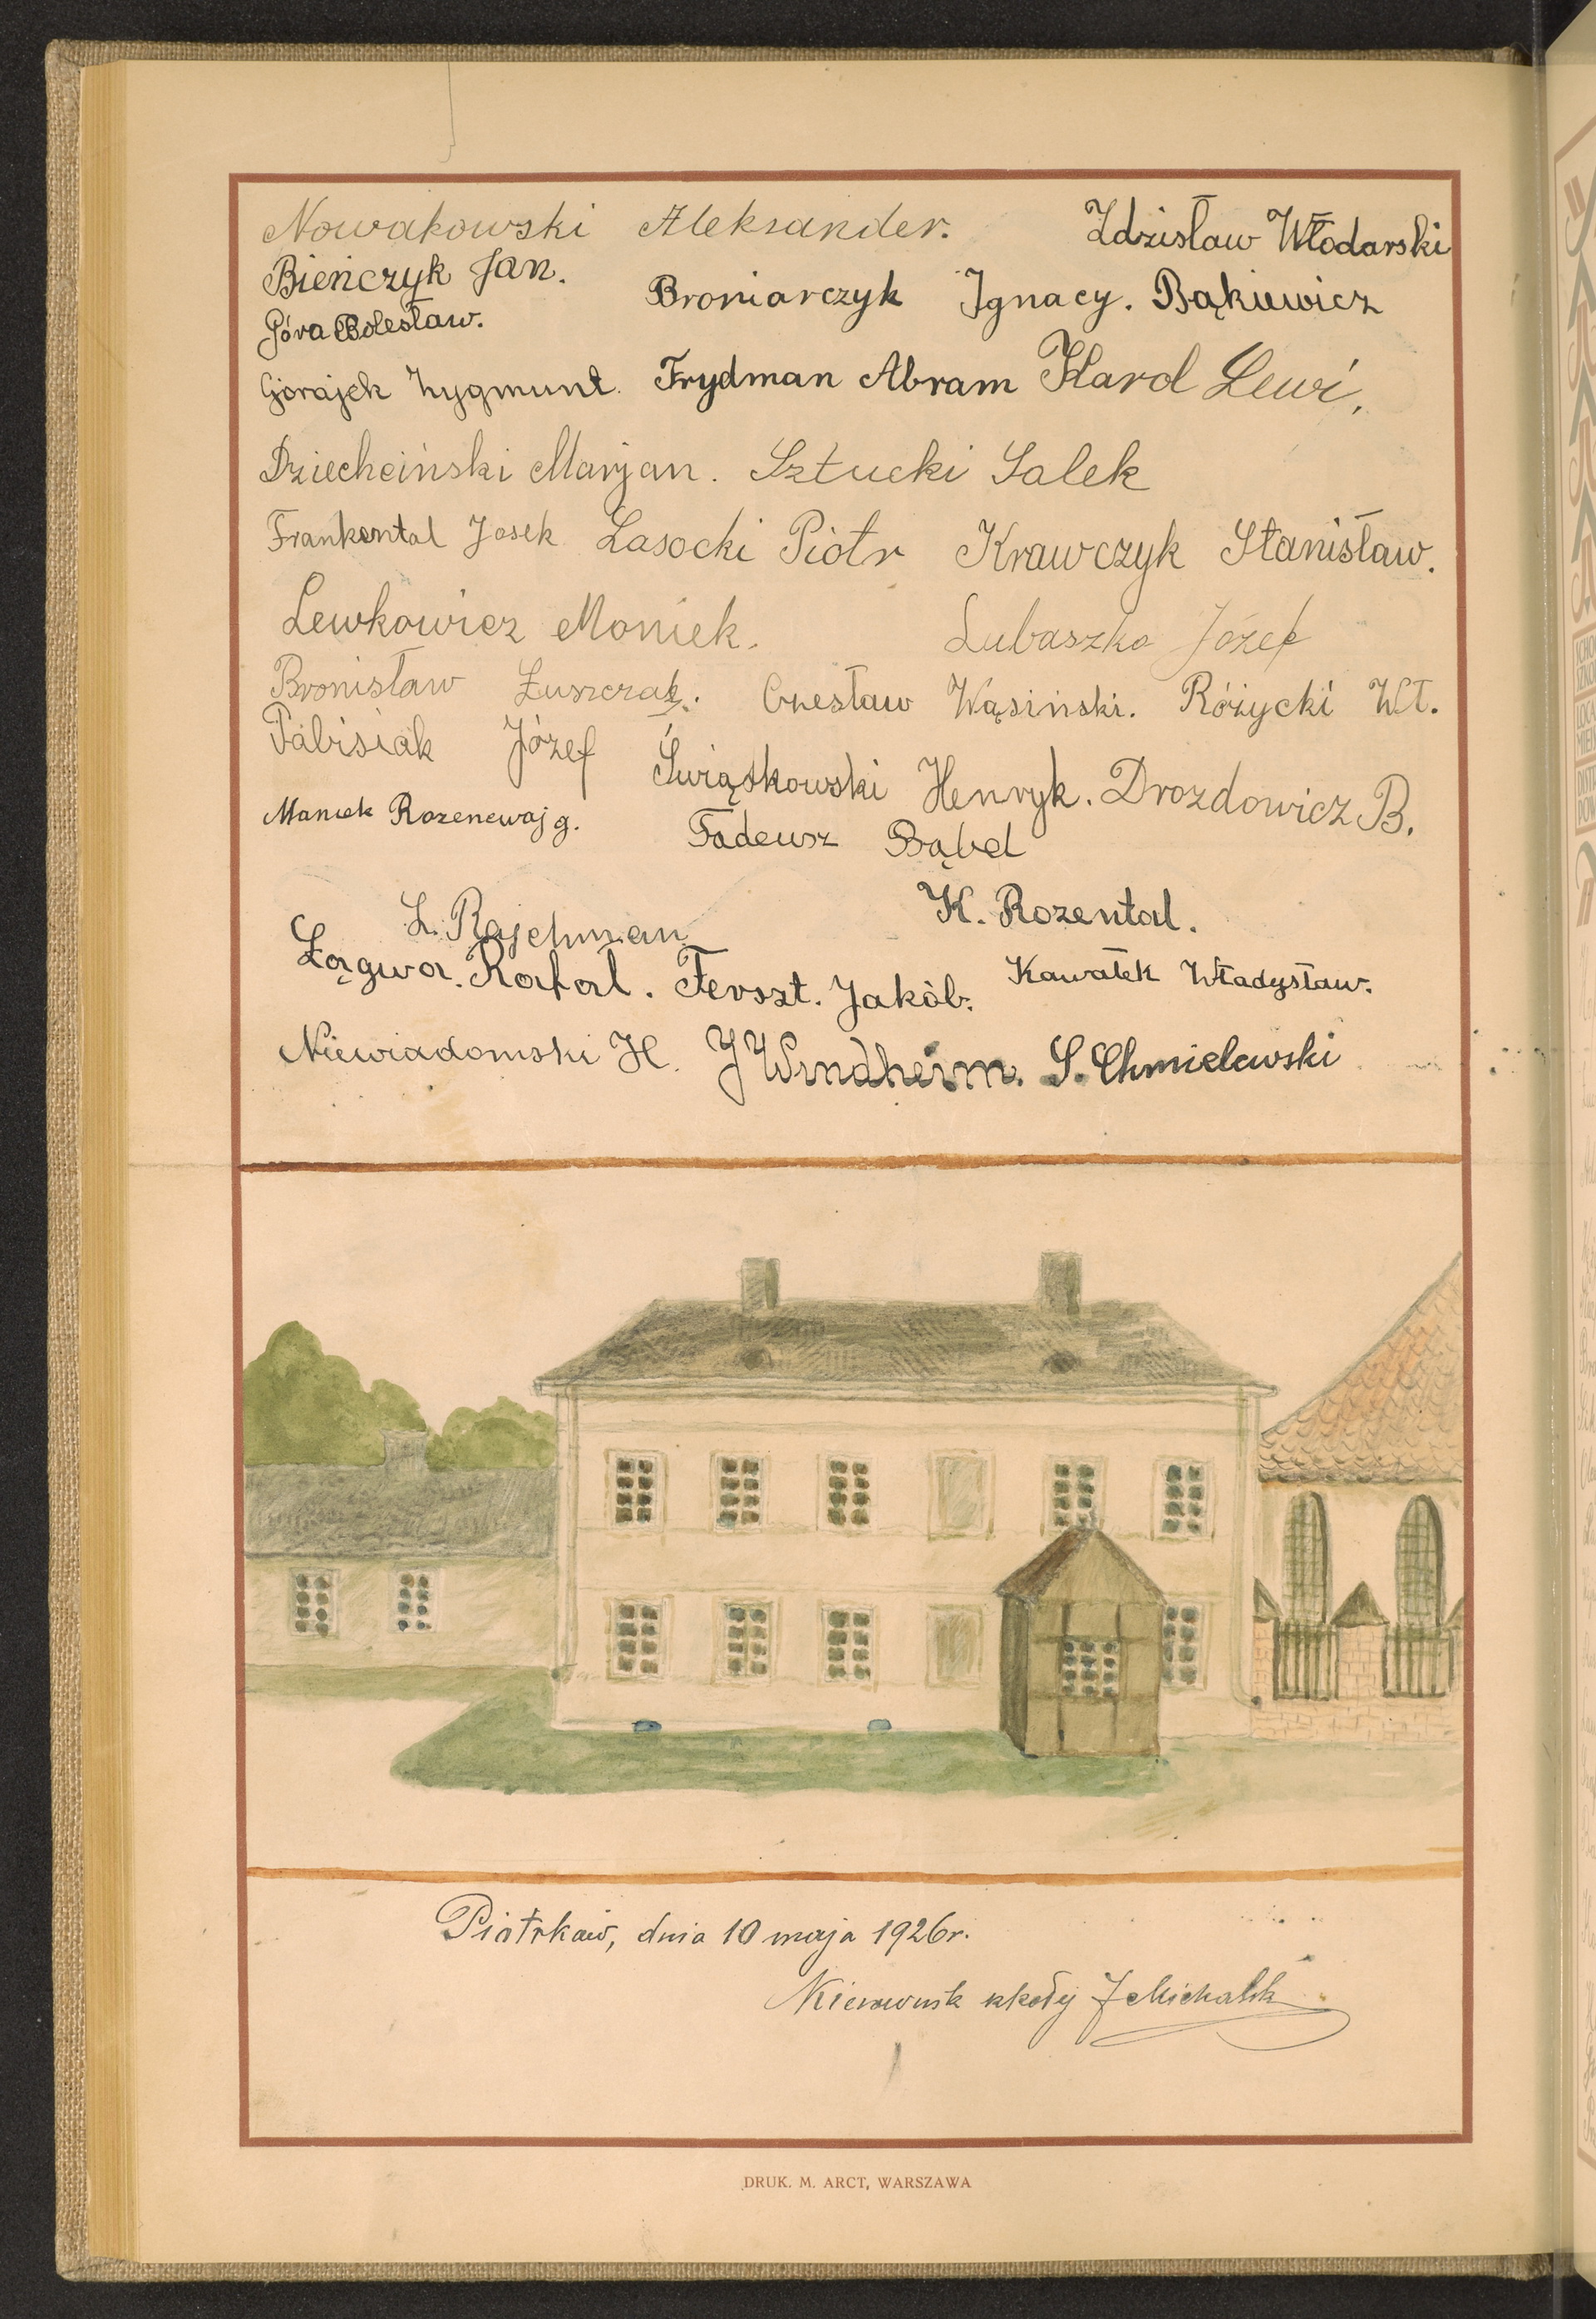 Nowakowski Aleksander. Zdzisław Włodarski
Bieńczyk Jan.
Broniarczyk Ignacy. Bąkiewicz
Góra Bolesław.
Gorajek Zygmunt. Frydman Abram Karol Lewi,
Dziechciński Marjan. Sztucki Salek
Frankental Josek Lasocki Piotr Krawczyk Stanisław.
Lewkowicz Moniek. Lubaszka Józef
Bronisław Łuszczak. Czesław Wąsiński. Różycki Wł.
Pabisiak Józef Świątkowski Henryk. Drozdowicz B.
Maniek Rozencwajg. Tadeusz Bąbel
L. Rajchman K. Rozental.
Łągwa. Rafał. Ferszt. Jakób. Kawałek Władysław.
Niewiadomski H. J Windheim. S. Chmielewski
Piotrków, dnia 10 maja 1926r.
Kierownik szkoły J Michalik
DRUK. M. ARCT, WARSZAWA